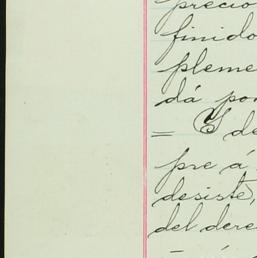 precio
finido
pleme
dá por
= Y de
pre á
desiste,
del dere